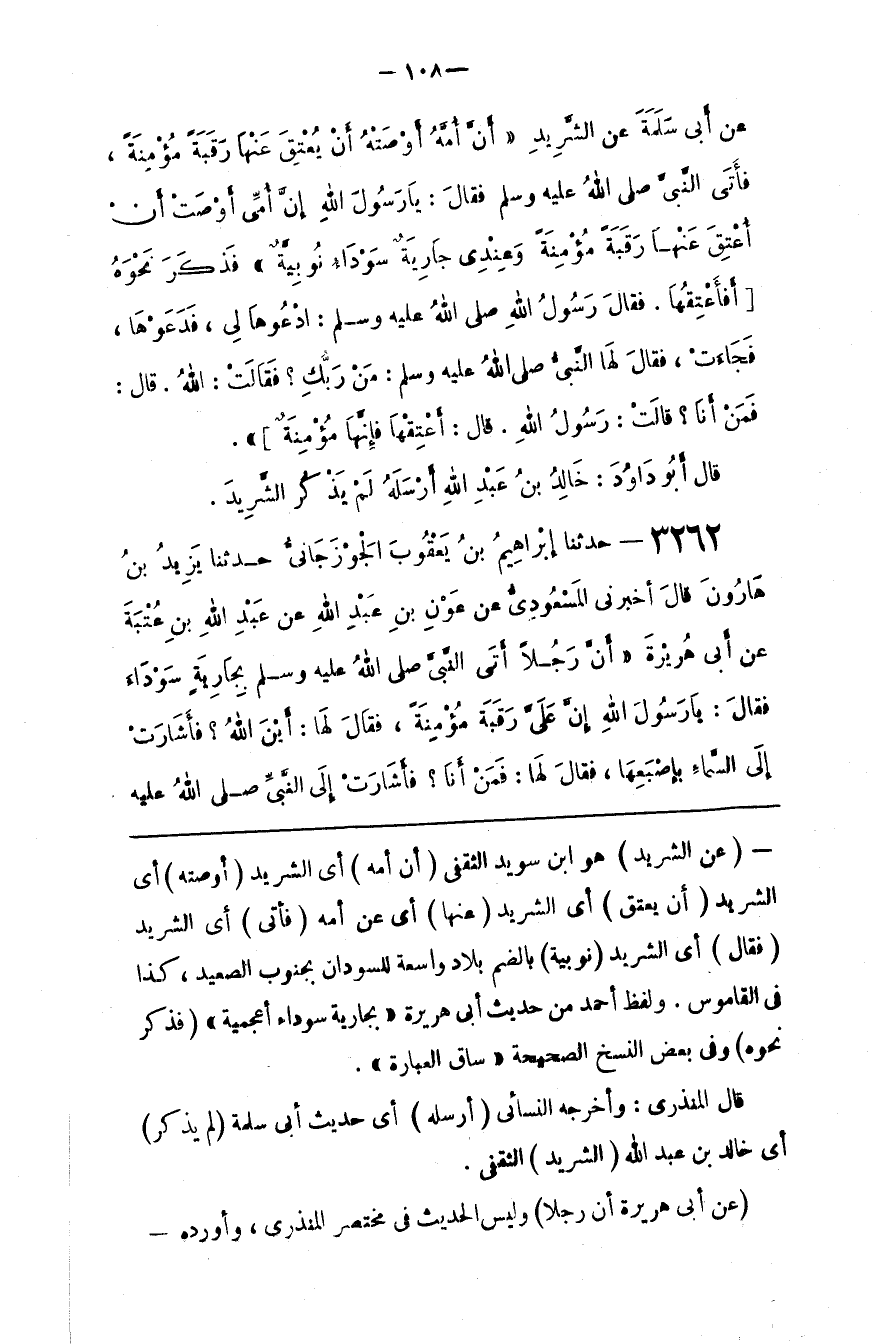 — ١٠٨ —
عن أَبى سَلَمَةَ عن الشَّرِيدِ « أَنَّ أُمَّهُ أَوْصَتْهُ أَنْ يُعْتِقَ عَنْهَا رَقَبَةً مُؤْمِنَةً ،
فأَتَى النَّبىَّ صلى اللهُ عليه وسلم فقالَ : يارَسُولَ اللهِ إنَّ أُمِّى أَوْصَتْ أَنْ
أُعْتِقَ عَنْهَا رَقَبَةً مُؤْمِنَةً وَعِنْدِى جارِيَةٌ سَوْدَاءِ نُوبِيَّةٌ » فَذَكَرَ نَحْوَهُ
[ أَفأُعْتِقُهَا . فقالَ رَسُولُ اللهِ صلى اللهُ عليه وسلم : ادْعُوهَا لِى ، فَدَعَوْهَا ،
فَجَاءَتْ ، فقالَ لَهَا النَّبىُّ صلى اللهُ عليه وسلم : مَنْ رَبُّكِ ؟ فَقَالَتْ : اللهُ . قال :
فَمَنْ أَنَا ؟ قالَتْ : رَسُولُ اللهِ . قال : أَعْتِقْهَا فإِنَّهَا مُؤْمِنَةٌ ] » .
قال أَبُو دَاوُدَ : خَالِدُ بنُ عَبْدِ اللهِ أَرْسَلَهُ لَمْ يَذْكُر الشَّرِيدَ .
٣٢٦٢ — حدثنا إبْرَاهِيمُ بنُ يَعْقُوبَ الجْوزَجَانىُّ حدثنا يَزِيدُ بنُ
هَارُونَ قالَ أخبرنى المَسْعُودِىُّ عن عَوْنِ بنِ عَبْدِ اللهِ عن عَبْدِ اللهِ بنِ عُتْبَةَ
عن أَبى هُرِيْرَةَ « أَنَّ رَجُلاً أَتَى النَّبىَّ صلى اللهُ عليه وسلم بِجارِيَةٍ سَوْدَاءَ
فقالَ : يارَسُولَ اللهِ إنَّ عَلَىَّ رَقَبَةً مُؤْمِنَةً ، فقالَ لَهَا : أَيْنَ اللهُ ؟ فأَشَارَتْ
إلَى السَّماءِ بإِصْبَعِهَا ، فقالَ لَهَا : فَمَنْ أَنَا ؟ فأَشَارَتْ إلَى النَّبىِّ صلى اللهُ عليه
— ( عن الشريد ) هو ابن سويد الثقفى ( أن أمه ) أى الشريد ( أوصته ) أى
الشريد ( أن يعتق ) أى الشريد ( عنها ) أى عن أمه ( فأتى ) أى الشريد
( فقال ) أى الشريد (نوبية) بالضم بلاد واسعة للسودان بجنوب الصعيد ، كذا
فى القاموس . ولفظ أحمد من حديث أبى هريرة « بجارية سوداء أعجمية » ( فذكر
نحوه) وفى بعض النسخ الصحيحة « ساق العبارة » .
قال المنذرى : وأخرجه النسائى ( أرسله ) أى حديث أبى سلمة (لم يذكر)
أى خالد بن عبد الله ( الشريد ) الثقفى .
(عن أبى هريرة أن رجلا) وليس الحديث فى مختصر المنذرى ، وأورده —